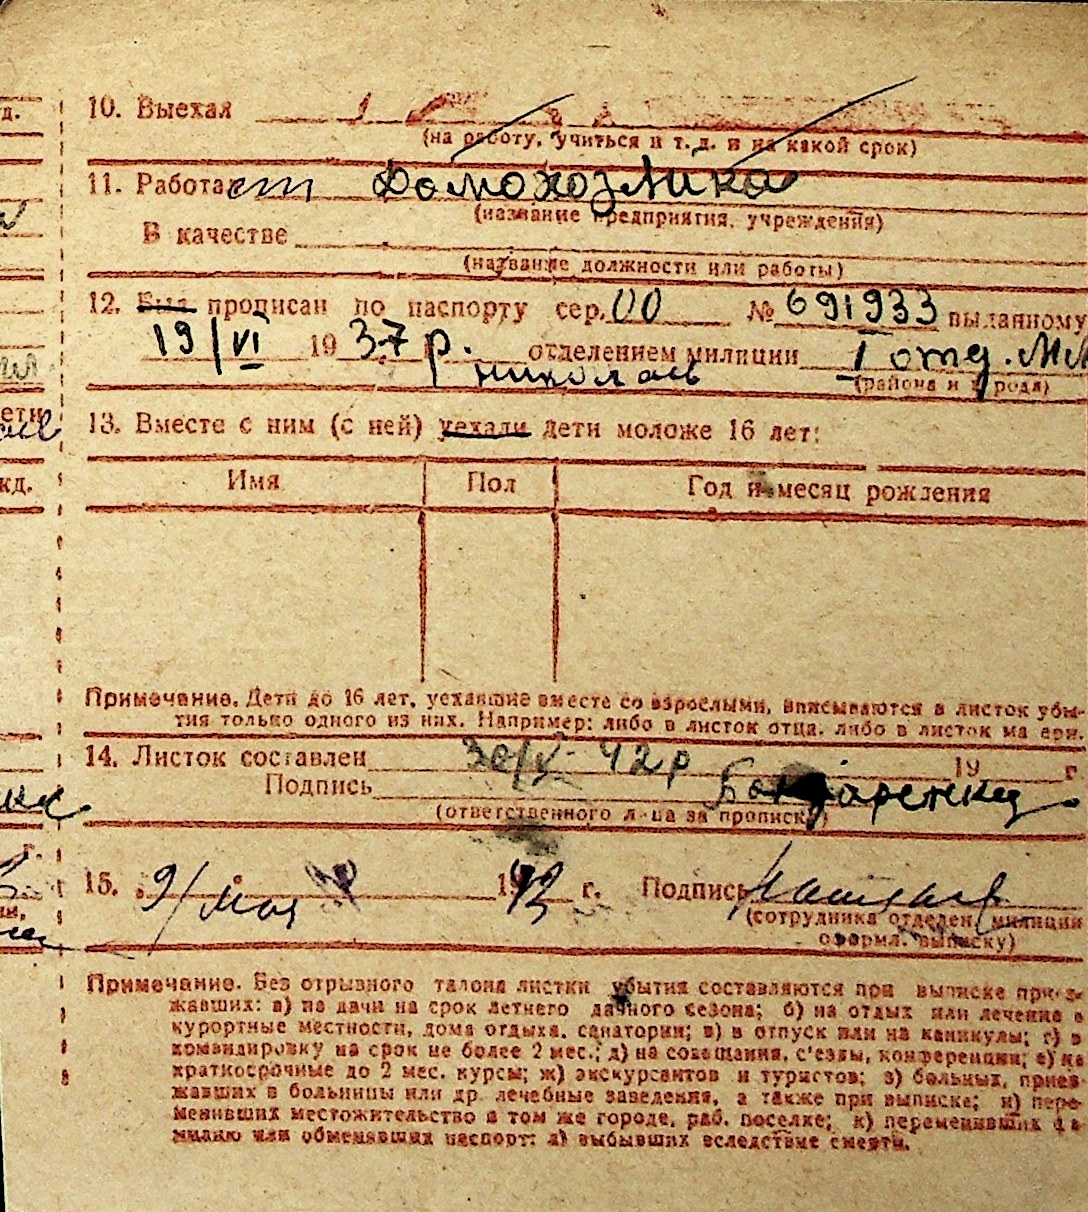 д.
10. Выехал
(на работу, учиться и т. д. и на какой срок)
11. Работает Домохозяйка
(название предприятия, учреждения)
В качестве
(название должности или работы)
12. Был прописан по паспорту сер. 00 № 691933 выданному
19/VI 1937 р. отделением милиции I отд. М
николаев
(района и города)
13. Вместе с ним (с ней) уехали дети моложе 16 лет:
жд.
Имя Пол Год и месяц рождения
Примечание. Дети до 16 лет, уехавшие вместе со взрослыми, вписываются в листок убы-
тия только одного из них. Например: либо в листок отца, либо в листок матери.
14. Листок составлен 30/V 42 р 19 г
Подпись Бондаренко
(ответственного лица за прописку)
г.
15. 9/ мая 1942 г. Подпись
(сотрудника отделен. милиции
оформл. выписку)
Примечание. Без отрывного талона листки убытия составляются при выписке приез-
жавших: а) на дачи на срок летнего дачного сезона; б) на отдых или лечение в
курортные местности, дома отдыха, санатории; в) в отпуск или на каникулы; г) в
командировку на срок не более 2 мес.; д) на совещания, с'езды, конференции; е) на
краткосрочные до 2 мес. курсы; ж) экскурсантов и туристов; з) больных, приез-
жавших в больницы или др. лечебные заведения, а также при выписке; и) пере-
менивших местожительство в том же городе, раб. поселке; к) переменивших фа-
милию или обменявших паспорт; л) выбывших вследствие смерти.